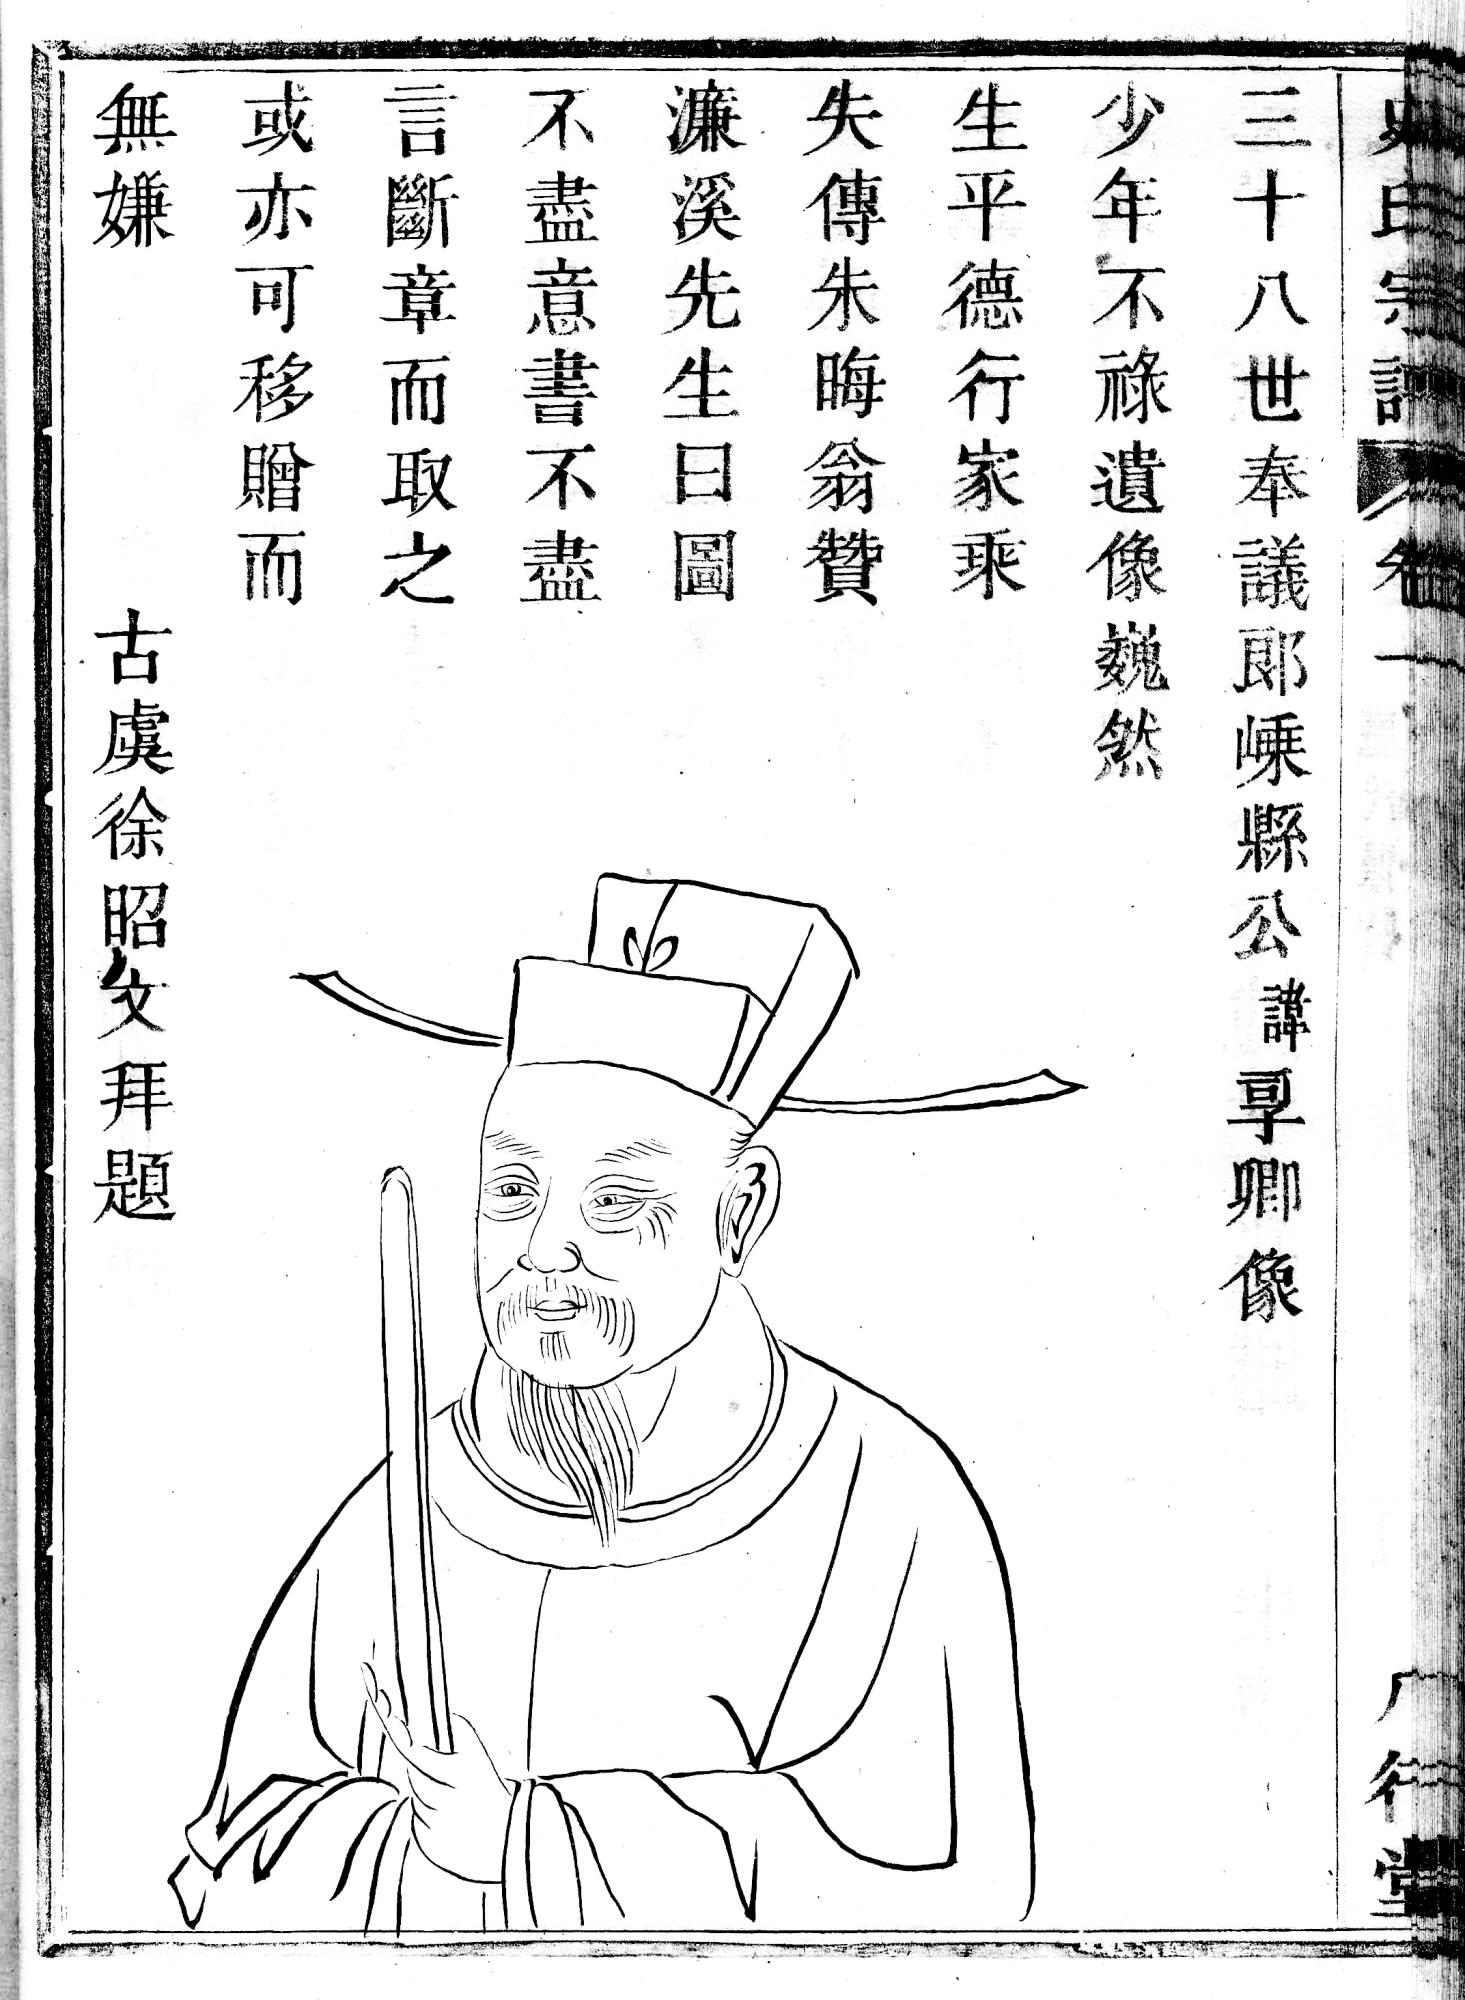 史氏宗譜 卷一 八行堂
三十八世奉議郎嵊縣公諱享卿像
少年不祿遺像巍然
生平德行家乘
失傳朱晦翁贊
濂溪先生曰圖
不盡意書不盡
言斷章而取之
或亦可移贈而
無嫌
古虞徐昭文拜題